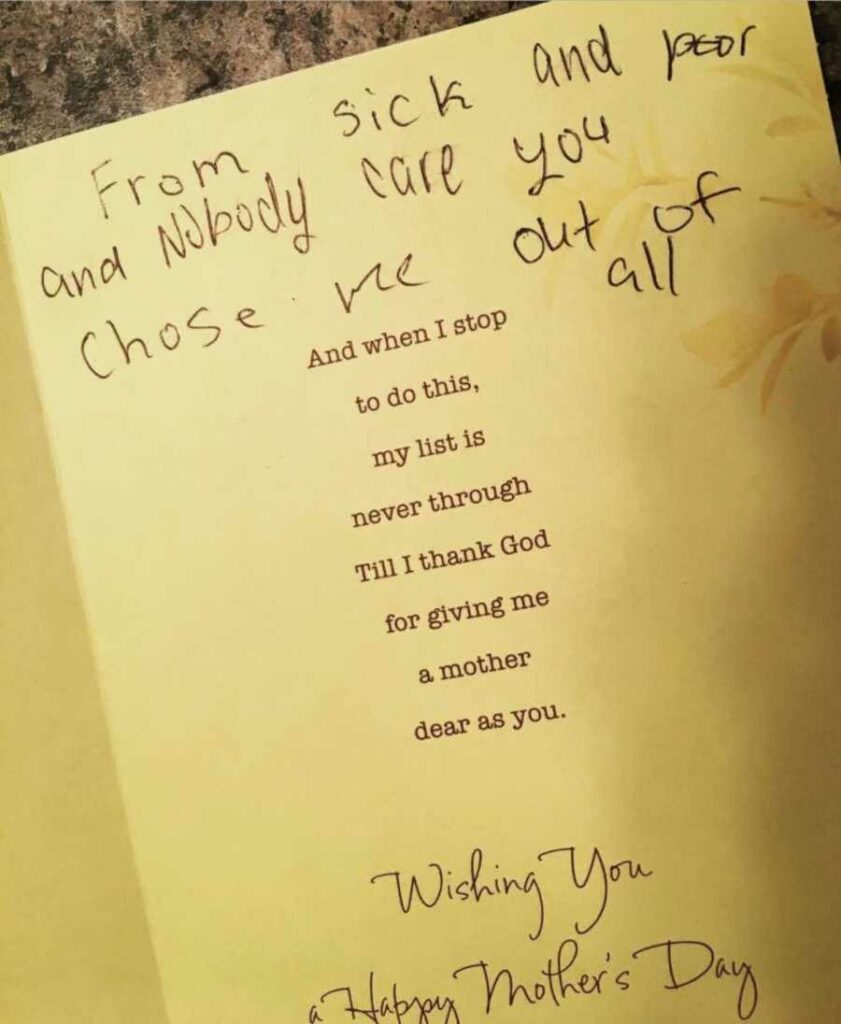 From sick and poor
and Nobody care you
Chose me out of
all
And when I stop
to do this,
my list is
never through
Till I thank God
for giving me
a mother
dear as you.
Wishing You
a Happy Mother's Day